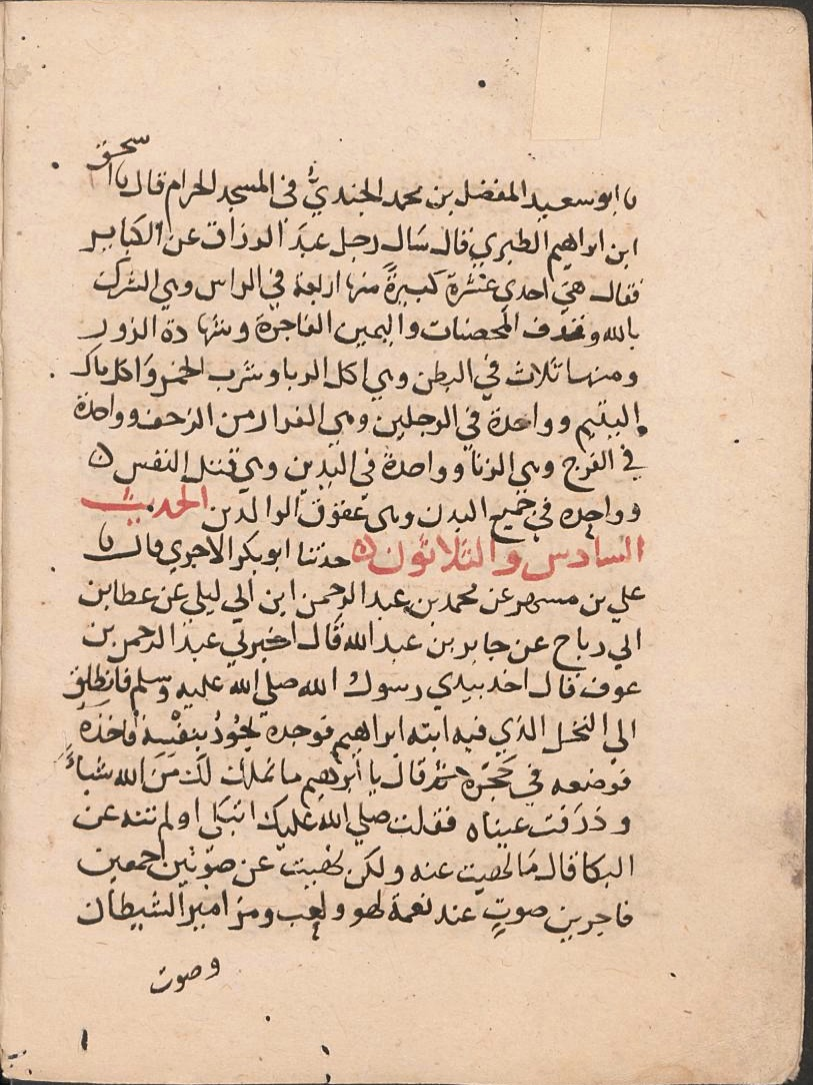 نا ابو سعيد المفضل بن محمد الجندي في المسجد الحرام قال نا اسحق
ابن ابراهيم الطبري قال سال رجل عبد الرزاق عن الكباير
فقال هي احدى عشرة كبيرة منها اربعة في الراس وهي الشرك
بالله وقذف المحصنات واليمين الفاجرة وشهادة الزور
ومنها ثلاث في البطن وهي اكل الربا وشرب الخمر واكل مال
اليتيم وواحدة في الرجلين وهي الفرار من الزحف وواحدة
في الفرج وهي الزنا وواحدة في اليدين وهي قتل النفس
وواحده في جميع البدن وهي عقوق الوالدين الحديث
السادس والثلاثون حدثنا ابو بكر الاجري قال نا
علي بن مسهر عن محمد بن عبد الرحمن ابن ابي ليلى عن عطا بن
ابي رباح عن جابر بن عبد الله قال اخبرني عبد الرحمن بن
عوف قال اخذ بيدي رسول الله صلى الله عليه وسلم فانطلق
الى النخل الذي فيه ابنه ابراهيم فوجده يجود بنفسه فاخذه
فوضعه في حجره ثم قال يا ابراهيم ما نملك لك من الله شياء
وذرفت عيناه فقلت صلى الله عليك اتبكي اولم تنه عن
البكا قال ما نهيت عنه ولكن نهيت عن صوتين احمقين
فاجرين صوت عند نعمة لهو ولعب ومزامير الشيطان
وصوت